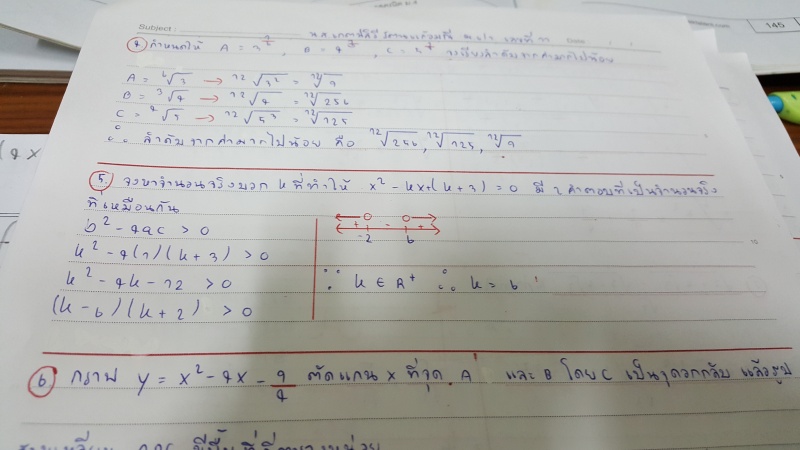 Subject :
Date
145
กำหนดให้ A = , B = , C = จงเรียงลำดับจากค่ามากไปน้อย
A = ⁶√3 → ¹²√3² = ¹²√9
B = ³√4 → ¹²√4 = ¹²√256
C = ⁴√5 → ¹²√5³ = ¹²√125
∴ ลำดับจากค่ามากไปน้อย คือ ¹²√256, ¹²√125, ¹²√9
5. จงหาจำนวนจริงบวก k ที่ทำให้ x² - kx + (k + 3) = 0 มี 2 คำตอบที่เป็นจำนวนจริง
ที่เหมือนกัน
b² - 4ac > 0
k² - 4(1)(k + 3) > 0
k² - 4k - 12 > 0
(k - 6)(k + 2) > 0
+ - +
-2 6
∵ k ∈ R⁺ ∴ k = 6
6 กราฟ y = x² - 4x - 9/4 ตัดแกน x ที่จุด A และ B โดย C เป็นจุดวกกลับ แล้วรูป